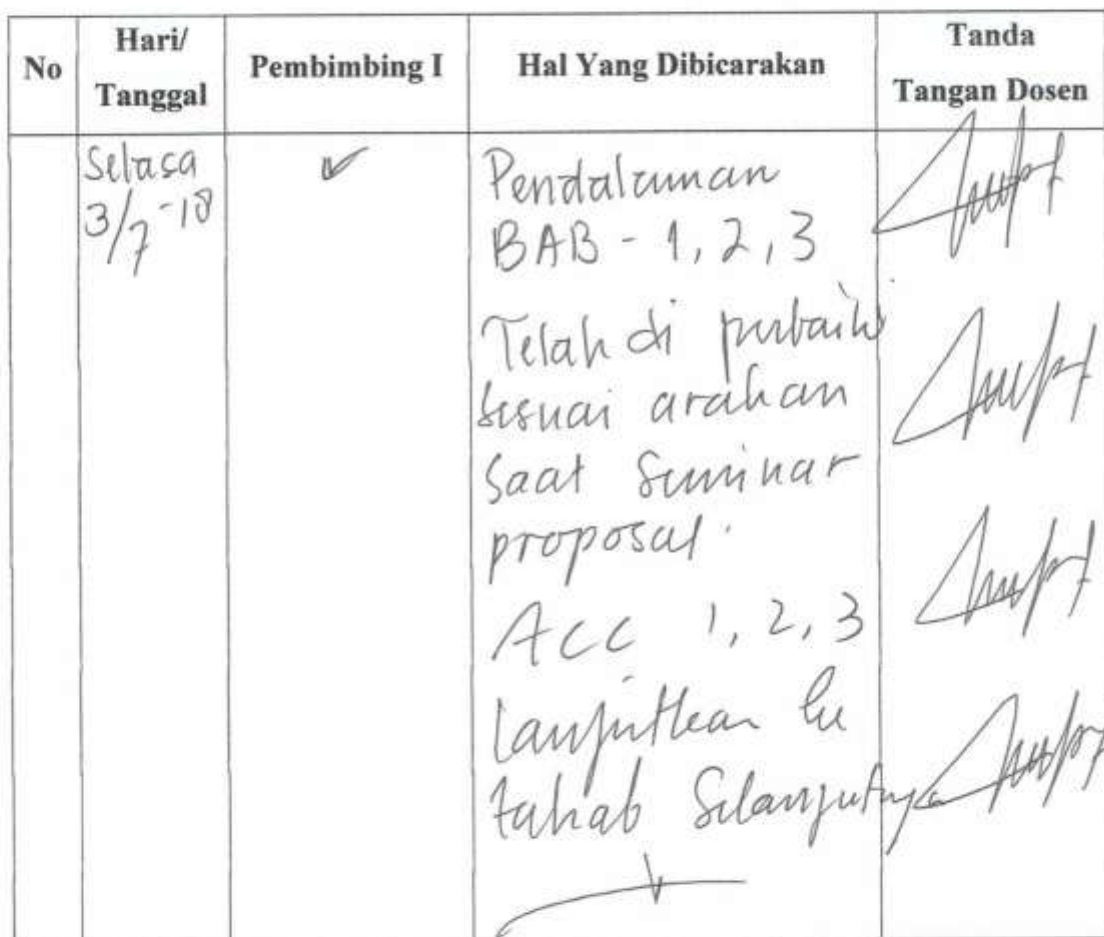 No
Hari/
Tanggal
Pembimbing I
Hal Yang Dibicarakan
Tanda
Tangan Dosen
Selasa
3/7-18
Pendalaman
BAB - 1, 2, 3
Telah di perbaiki
sesuai arahan
saat seminar
proposal.
ACC 1, 2, 3
lanjutkan ke
tahab Selanjutnya